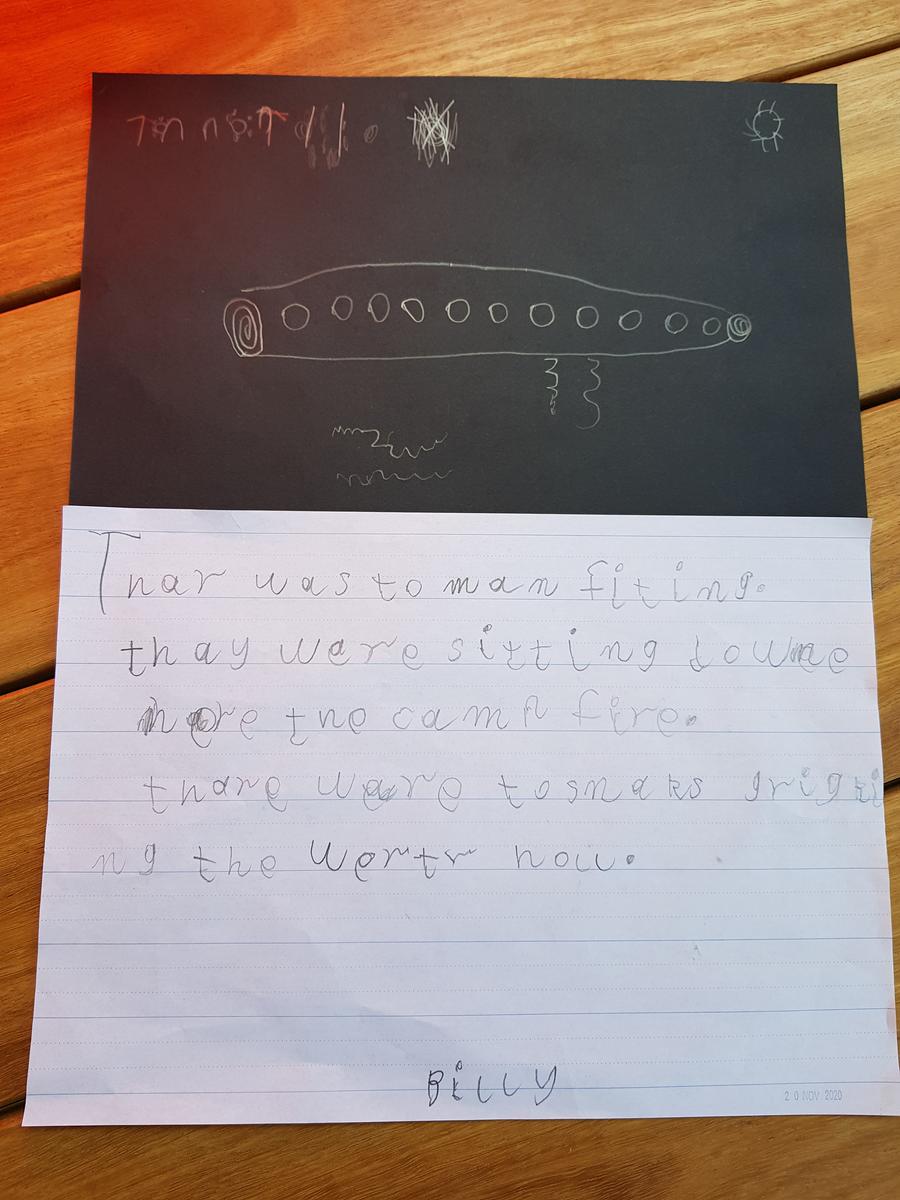 Thar was to man fiting.
thay were sitting downe
here the camp fire.
thare were to snaks grigki
ng the wertr now.
Billy
20 NOV 2020